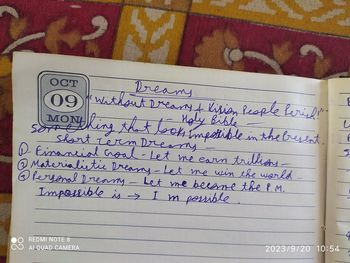 OCT
09
MON
Dreams
"Without Dreams & Vision People Perish"
- Holy Bible
Something that looks impossible in the Present.
Short Term Dreams -
① Financial Goal - Let me earn trillions -
② Materialistic Dreams - Let me win the world -
③ Personal Dreams - Let me become the P.M.
Impossible is → I m possible.
REDMI NOTE 8
AI QUAD CAMERA
2023/9/20 10:54